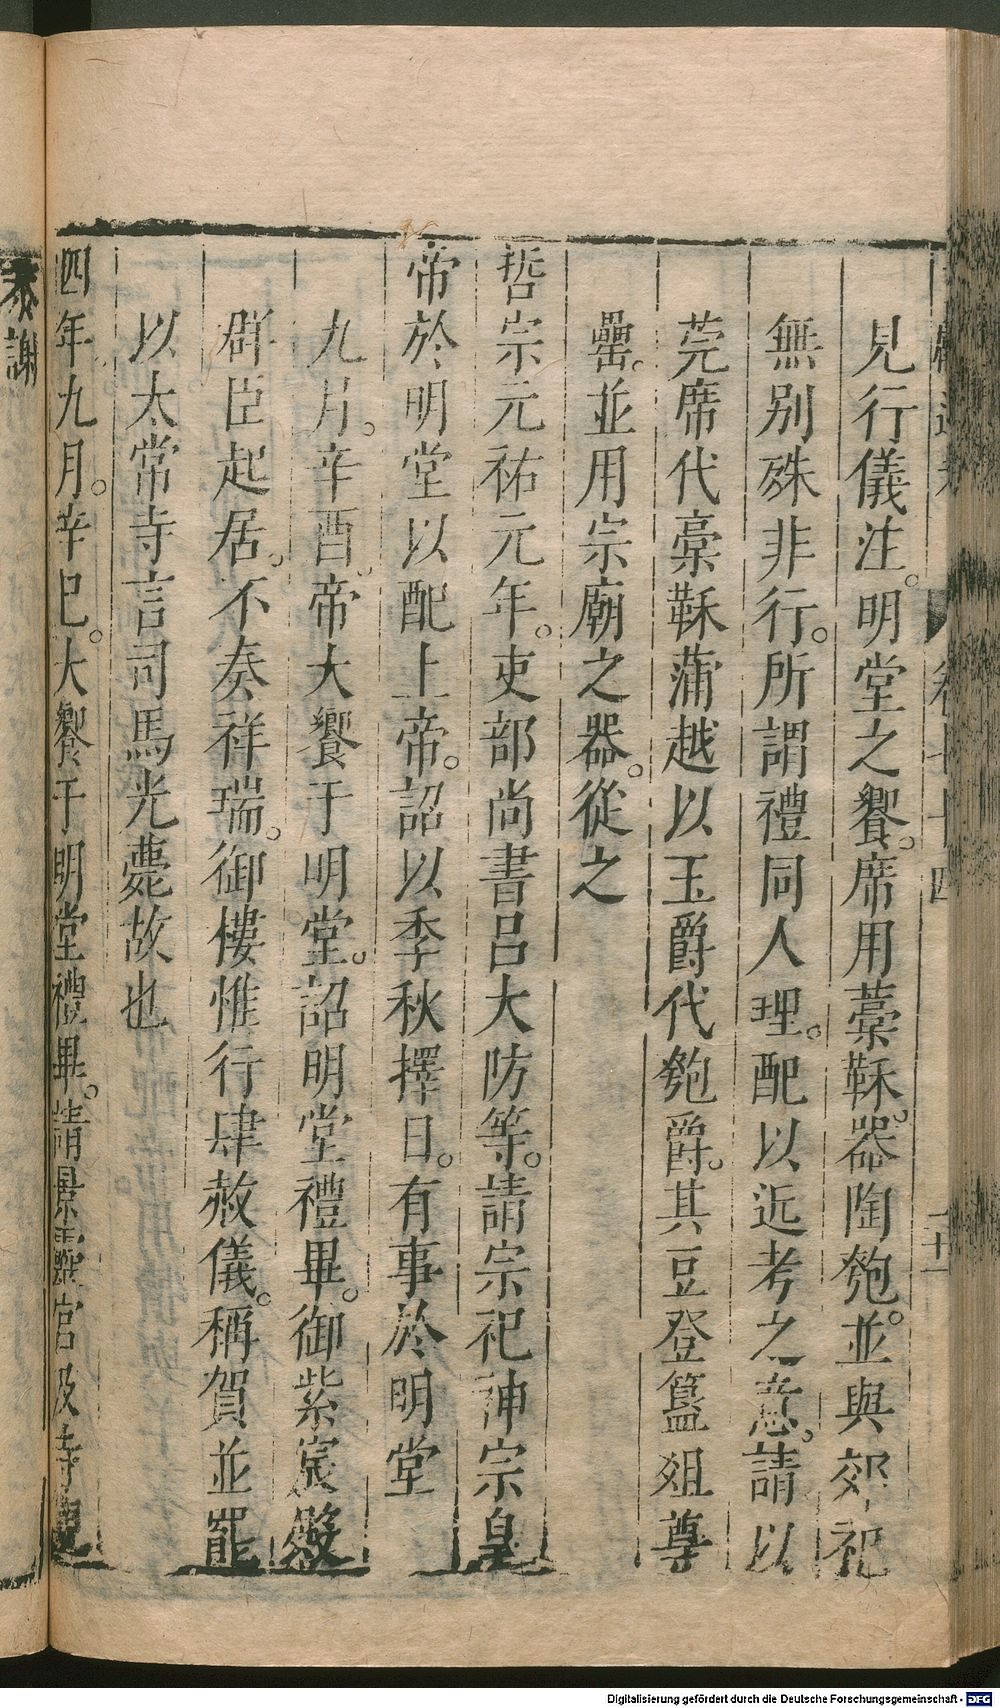 見行儀注。明堂之饗。席用藁鞂。器陶匏。並與郊祀
無別殊非行。所謂禮同人理。配以近考之意。請以
莞席代藁鞂蒲越以玉爵代匏爵。其豆登簋俎尊
罍。並用宗廟之器。從之
哲宗元祐元年。吏部尚書呂大防等。請宗祀神宗皇
帝於明堂以配上帝。詔以季秋擇日。有事於明堂
九月。辛酉。帝大饗于明堂。詔明堂禮畢。御紫宸殿
群臣起居。不奏祥瑞。御樓惟行肆赦儀。稱賀並罷
以太常寺言司馬光薨故也
四年九月。辛巳。大饗于明堂禮畢。請景靈宮及寺觀
恭謝
Digitalisierung gefördert durch die Deutsche Forschungsgemeinschaft - DFG